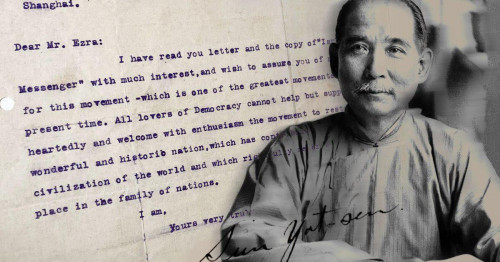 Shanghai.
Dear Mr. Ezra:
I have read you letter and the copy of"Isr
Messenger" with much interest,and wish to assure you of
for this movement -which is one of the greatest movements
present time. All lovers of Democracy cannot help but supp
heartedly and welcome with enthusiasm the movement to rest
wonderful and historib nation,which has con
civilization of the world and which rightfully
place in the family of nations.
I am,
Yours very truly
Sun Yat-sen.